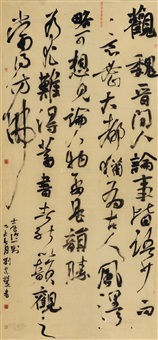 觀魏晉間人論事皆語少而
意密大都猶有古人風澤
略可想見論人物要是韻勝
為尤難得蓄書者能以韻觀之
當得彷彿